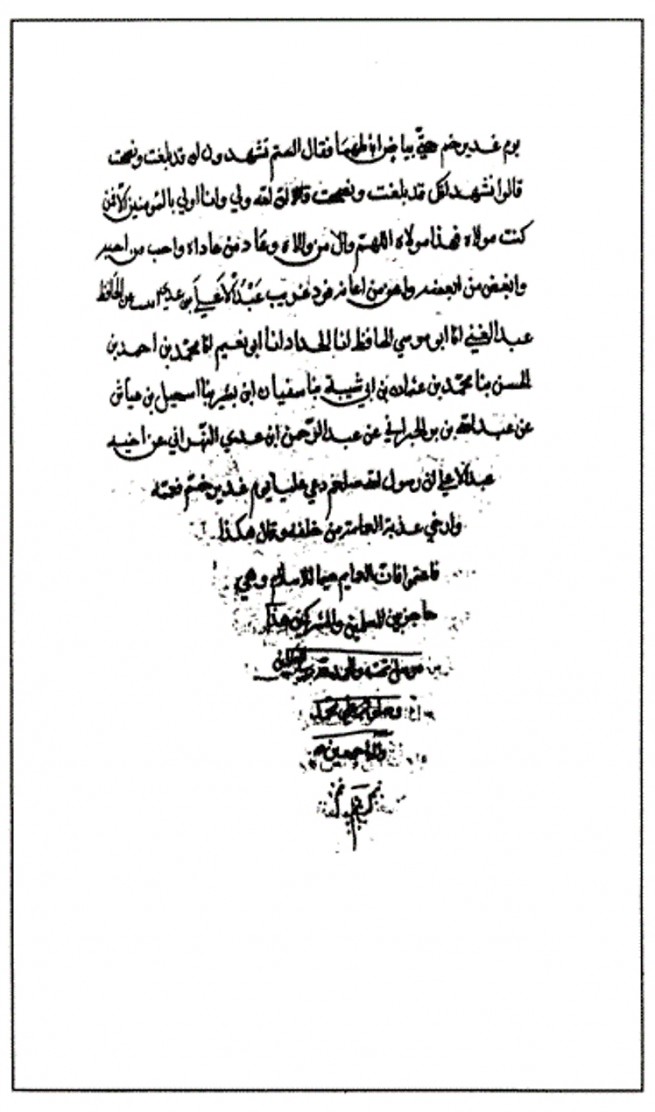 يوم غدير خم حتى بياض ابطيهما فقال الستم تشهدون ان قد بلغت ونصحت
قالوا نشهد لقد بلغت ونصحت قال ان الله ولي وانا اولي بالمؤمنين الا فمن
كنت مولاه فهذا مولاه اللهم وال من والاه وعاد من عاداه واحب من احبه
وابغض من ابغضه واعن من اعانه فرد غريب عبد الاعلي بن عدي الحافظ
عبد الغني انا ابو موسي الحافظ انا الحداد انا ابو نعيم انا محمد بن احمد بن
الحسن بنا محمد بن عثمان بن ابي شيبة بنا سفيان ابن بشير بنا اسمعيل بن عياش
عن عبد الله بن بن الحبراني عن عبد الرحمن ابن عدي النهراني عن اخيه
عبد الاعلي ان رسول الله صلعم دعي عليا يوم غدير خم فعمه
وارخي عذبة العمامة من خلفه وقال هكذا
فاعتموا فان العمايم سيما الاسلام وهي
حاجز بين المسلمين والمشركين هذا
والحمد لله رب العالمين
وصلى الله على محمد
واله اجمعين